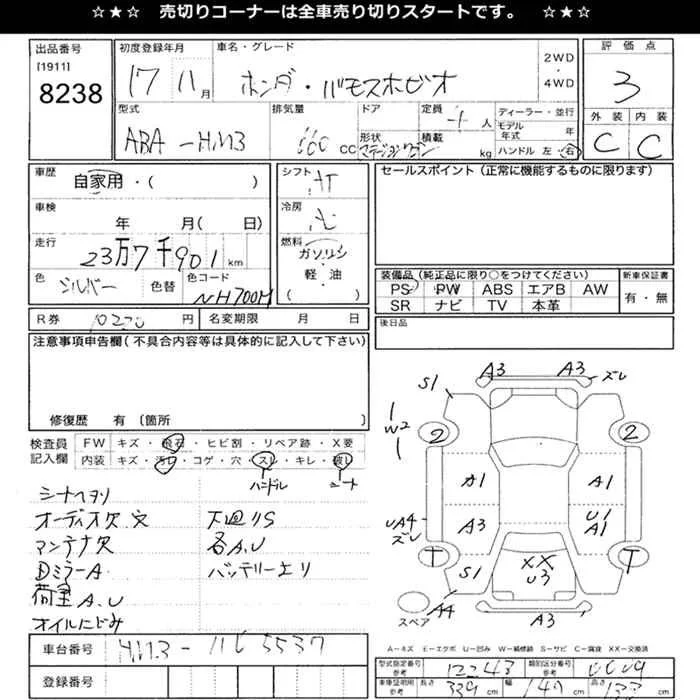 ☆★☆ 売切りコーナーは全車売り切りスタートです。 ☆★☆
出品番号
[1911]
8238
初度登録年月
17 11月
車名・グレード
ホンダ・バモスホビオ
2WD
・
4WD
評価点
3
外装 内装
C C
型式
ABA-HM3
排気量
660 cc
ドア
形状
ステーションワゴン
定員
4人
積載
kg
ディーラー・並行
モデル
年式 年
ハンドル 左・右
車歴
自家用・( )
車検
年 月( 日)
走行
23万7千901km
色
シルバー
色替
色コード
NH700M
シフト
AT
冷房
AC
燃料
ガソリン
軽・油
( )
セールスポイント(正常に機能するものに限ります)
装備品(純正品に限り○をつけてください)
PS PW ABS エアB AW
SR ナビ TV 本革
新車保証書
有・無
後日品
R券 円
名変期限 月 日
注意事項申告欄(不具合内容等は具体的に記入して下さい)
修復歴 有〔箇所 〕
検査員
記入欄
FW キズ・飛石・ヒビ割・リペア跡・X要
内装 キズ・汚れ・コゲ・穴・スレ・キレ・破れ
ハンドル シート
オーディオ欠 穴
下廻りS
アンテナ欠
各A.U
DミラーA
バッテリー上り
荷室A.U
オイルにじみ
車台番号
HM3-
登録番号
A3 A3 ズレ
S1
W2
2 2
A1 A1
UA4
ズレ
A3
U1
A1
T T
XX
U3
S1
スペア
A4
A3
A-キズ E-エクボ U-凹み W-補修跡 S-サビ C-腐食 XX-交換済
型式指定番号
参考
12243
類別区分番号
参考
車庫証明用
参考
長さ 339 cm 幅 147 cm 高さ cm